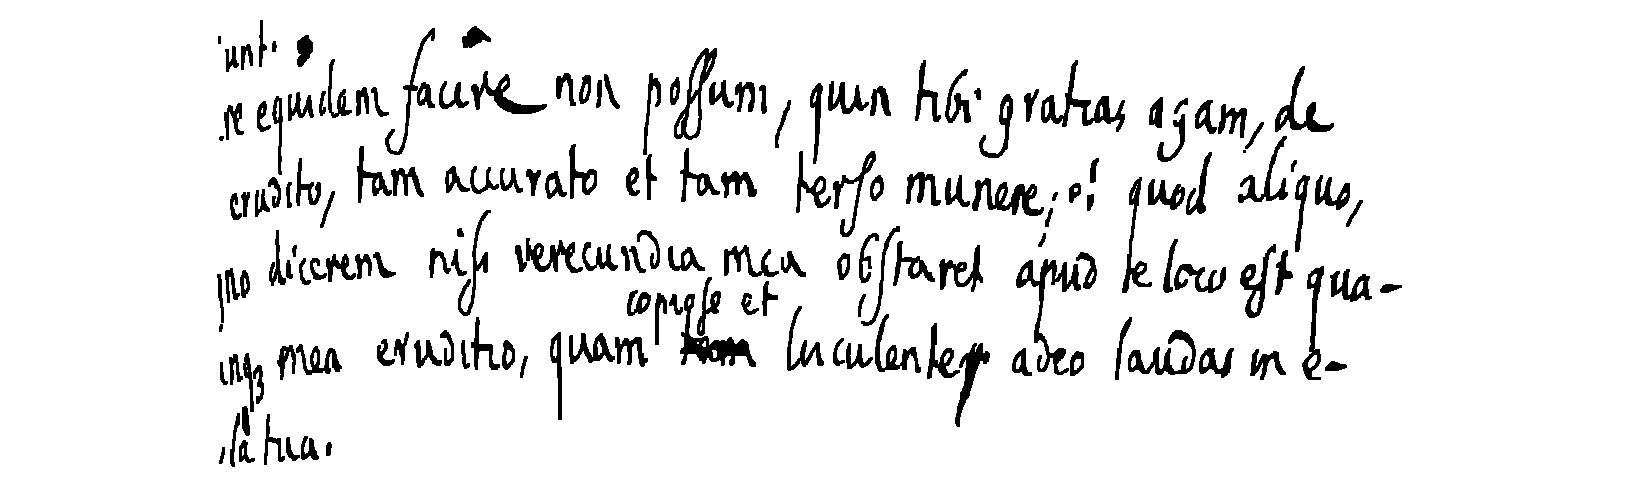 iunt.
re equidem facere non possum, quin tibi gratias agam, de
erudito, tam accurato et tam terso munere; quod aliquo,
dicerem nisi verecundia mea obstaret apud te loco est qua-
inqꝫ mea eruditio, quam luculenter adeo laudas in e-
copiose et
tua.